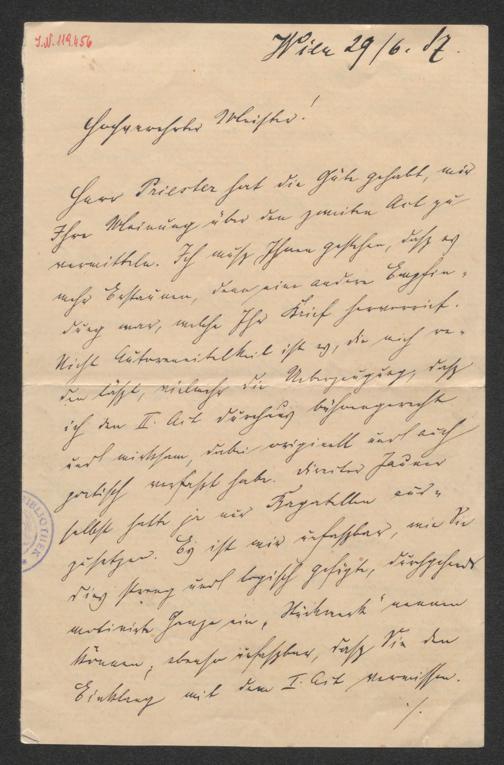 I.N. 119.456
Wien 29/6. 87.
Hochverehrter Meister!
Herr Priester hat die Güte gehabt, mir
Ihre Meinung über den zweiten Act zu
vermitteln. Ich muß Ihnen gestehen, daß es
mehr Erstaunen, denn eine andere Empfin-
dung war, welche Ihr Brief hervorrief.
Nicht Autoreneitelkeit ist es, die mich re-
den läßt, vielmehr die Ueberzeugung, daß
ich den II. Act durchaus bühnengerecht
und wirksam, dabei originell und auch
poetisch verfaßt habe. Direktor Jauner
selbst hatte ja nur Bagatellen aus-
zusetzen. Es ist mir unfaßbar, wie Sie
dies streng und logisch gefügte, durchgehends
motivirte Ganze ein „Stückwerk" nennen
können; ebenso unfaßbar, daß Sie den
Einklang mit dem I. Act vermissen.
./.
BIBLIOTHEK